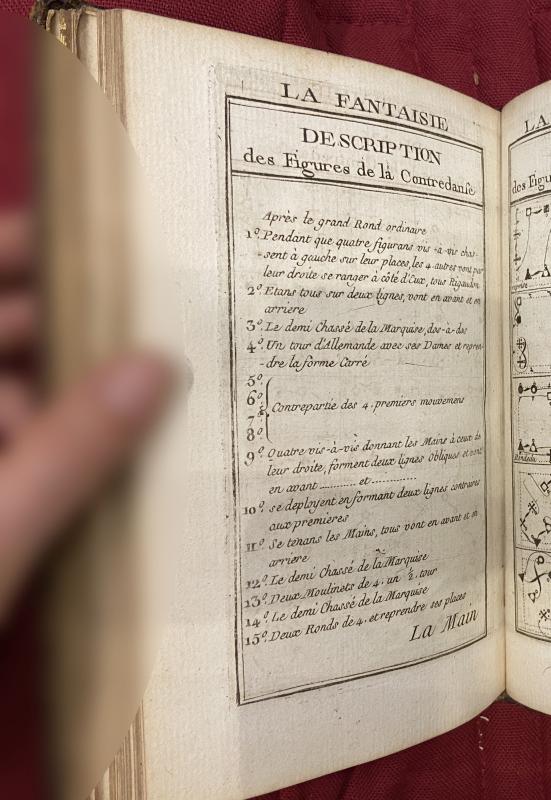 LA FANTAISIE
DESCRIPTION
des Figures de la Contredanse
Après le grand Rond ordinaire
1º. Pendant que quatre figurans vis-à-vis chas-
-sent à gauche sur leur places, les 4 autres vont par
leur droite se ranger à côté d'Eux, tous Rigaudon
2º. Etans tous sur deux lignes, vont en avant et en
arriere
3º. Le demi Chassé de la Marquise, dos-à-dos
4º. Un tour d'Allemande avec ses Dames et repren-
-dre la forme Carré
5º.
6º.
7º.
8º.
Contrepartie des 4. premiers mouvemens
9º. Quatre vis-à-vis donnant les Mains à ceux de
leur droite, forment deux lignes Obliques et vont
en avant ............ et ...............
10º. se deployent en formant deux lignes contraires
aux premieres
11º. Se tenans les Mains, tous vont en avant et en
arriere
12º. Le demi Chassé de la Marquise
13º. Deux Moulinets de 4. un ½. tour
14º. Le demi Chassé de la Marquise
15º. Deux Ronds de 4. et reprendre ses places
La Main
LA
des Figu